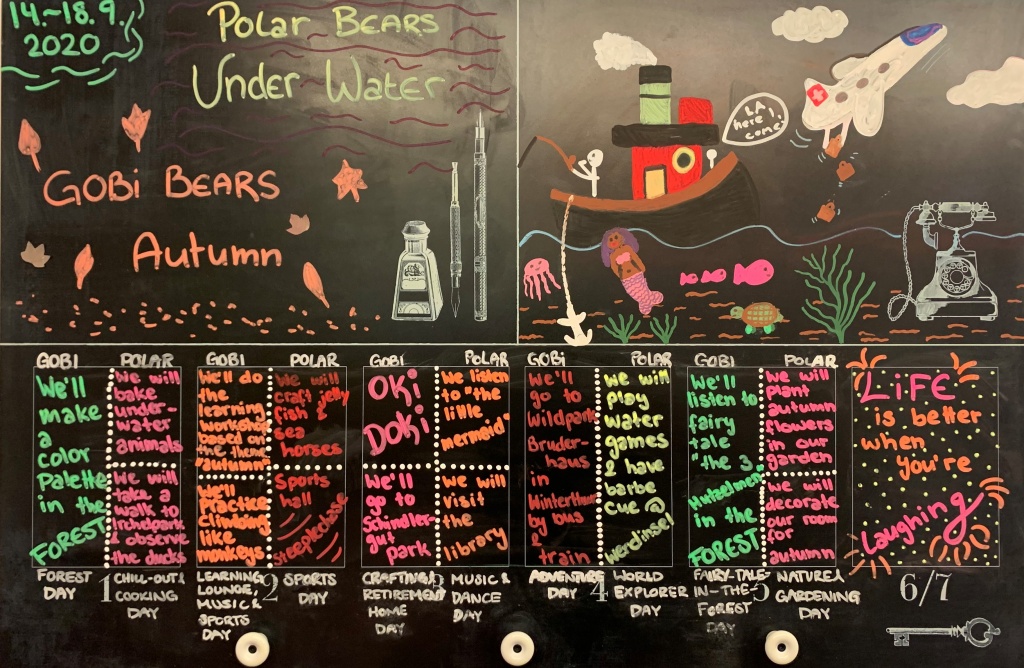 14.-18.9.
2020
Polar Bears
Under Water
GOBi BEARS
Autumn
LA
here I
come!
GOBI
We'll
make
a
color
palette
in the
FOREST
POLAR
we will
bake
under-
water
animals
we will
take a
walk to
& observe
the ducks
GOBI
we'll do
the
learning
workshop
based on
the theme
"autumn"
we'll
Practice
climbing
like
monkeys
POLAR
we will
craft jelly
fish &
sea
horses
Sports
hall
steeplechase
GOBI
Oki
Doki
We'll
go to
Schindler-
gut
park
POLAR
we listen
to "the
little
mermaid"
we will
visit
the
library
GOBi
we'll
go to
wildpark
Bruder-
haus
in
Winterthur
by bus
&
train
POLAR
we will
play
water
games
& have
barbe
cue @
Werdinsel
GOBI
We'll
listen to
fairy
tale
"the 3
Hutzelmen"
in the
FOREST
POLAR
we will
plant
autumn
flowers
in our
garden
we will
decorate
our room
for
autumn
LiFE
is better
when
you're
Laughing
FOREST
DAY
1
CHILL-OUT &
COOKING
DAY
LEARNING
LOUNGE,
MUSIC &
SPORTS
DAY
2
SPORTS
DAY
CRAFTING/
RETIREMENT
HOME
DAY
3
MUSIC &
DANCE
DAY
ADVENTURE
DAY
4
WORLD
EXPLORER
DAY
FAIRY-TALE-
IN-THE-
FOREST
DAY
5
NATURE &
GARDENING
DAY
6/7